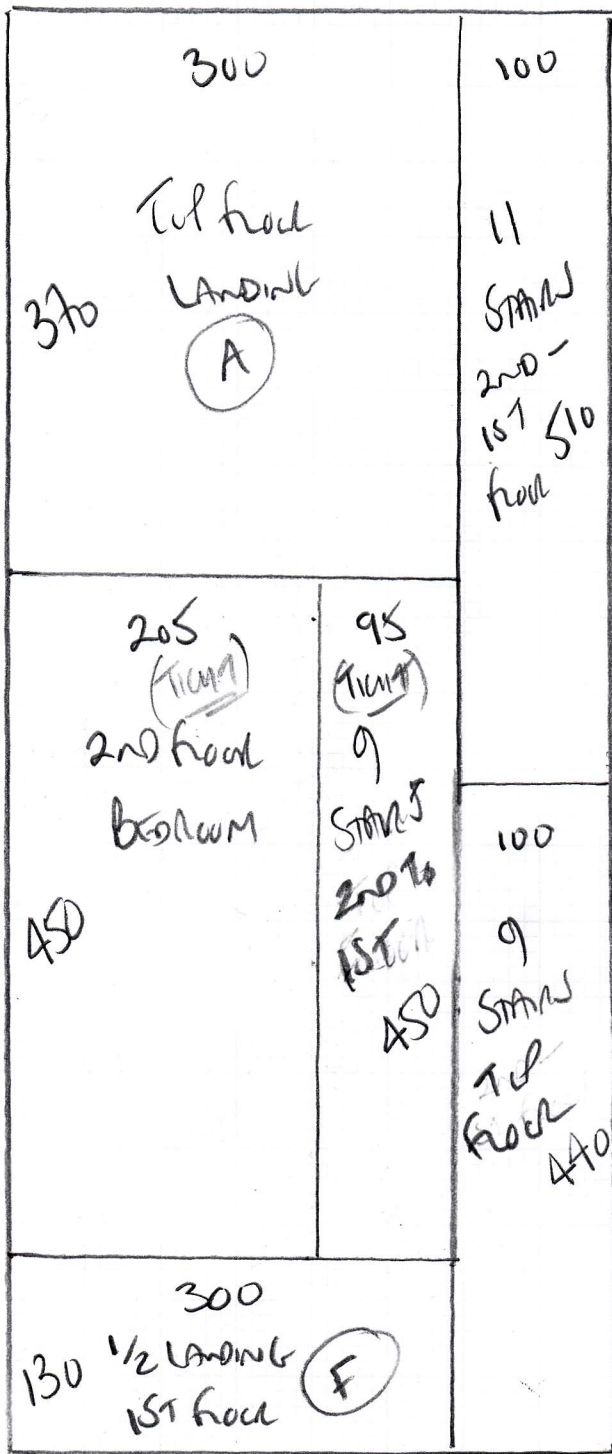 300
TOP FLOOR
LANDING
370
A
100
11
STAIRS
2ND -
1ST
FLOOR
510
205
(TIGHT)
2ND FLOOR
BEDROOM
450
95
(TIGHT)
9
STAIRS
2ND TO
1ST
450
100
9
STAIRS
TOP
FLOOR
440
300
130 1/2 LANDING
1ST FLOOR
F